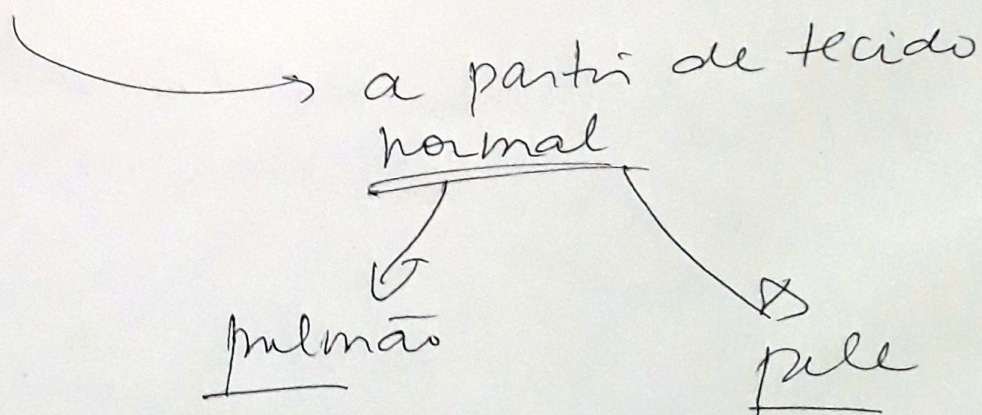 a partir de tecido
normal
pulmão
pele